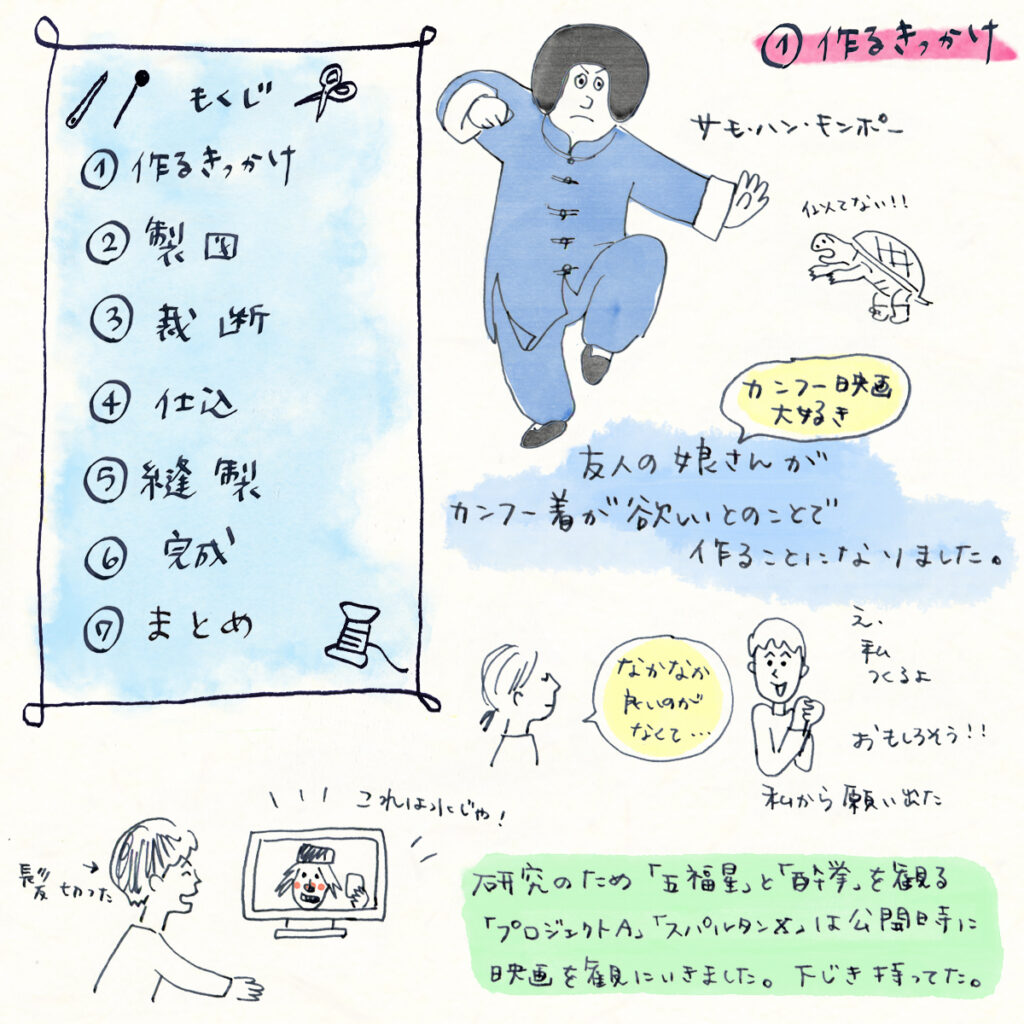 もくじ
① 作るきっかけ
② 製図
③ 裁断
④ 仕込
⑤ 縫製
⑥ 完成
⑦ まとめ
① 作るきっかけ
サモ・ハン・キンポー
似てない!!
カンフー映画
大好き
友人の娘さんが
カンフー着が欲しいとのことで
作ることになりました。
なかなか
良いのが
なくて…
え、
私
つくるよ
おもしろそう!!
私から願い出た
これは水じゃ!
髪切った
研究のため「五福星」と「酔拳」を観る
「プロジェクトA」「スパルタンX」は公開時に
映画を観にいきました。下じき持ってた。